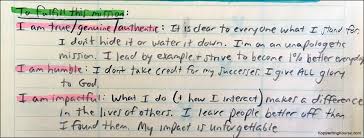 To fulfill this mission:
I am true/genuine/authentic: It is clear to everyone what I stand for.
I don't hide it or water it down. I'm on an unapologetic
mission. I lead by example + strive to become 1% better everyday
I am humble: I don't take credit for my successes. I give ALL glory
to God.
I am impactful: What I do (+ how I interact) makes a difference
in the lives of others. I leave people better off than
I found them. My impact is unforgettable